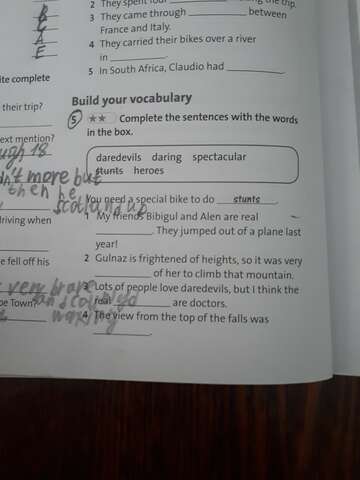 2 They spent four the trip.
3 They came through between
France and Italy.
4 They carried their bikes over a river
in
5 In South Africa, Claudio had
A
E
complete
their trip?
Build your vocabulary
5 ★★ Complete the sentences with the words
in the box.
ext mention?
18
daredevils daring spectacular
stunts heroes
more but
then he
You need a special bike to do stunts.
driving when
1 My friends Bibigul and Alen are real
. They jumped out of a plane last
year!
e fell off his
2 Gulnaz is frightened of heights, so it was very
of her to climb that mountain.
very brave
3 Lots of people love daredevils, but I think the
real are doctors.
pe Town?
4 The view from the top of the falls was